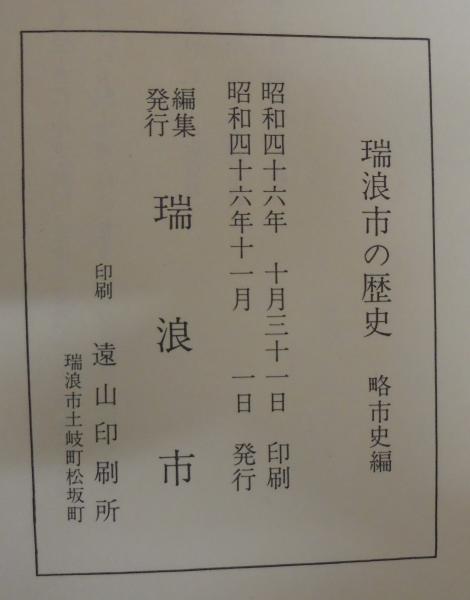 瑞浪市の歴史 略市史編
昭和四十六年 十月三十一日 印刷
昭和四十六年十一月 一日 発行
編集
発行
瑞浪市
印刷 遠山印刷所
瑞浪市土岐町松坂町